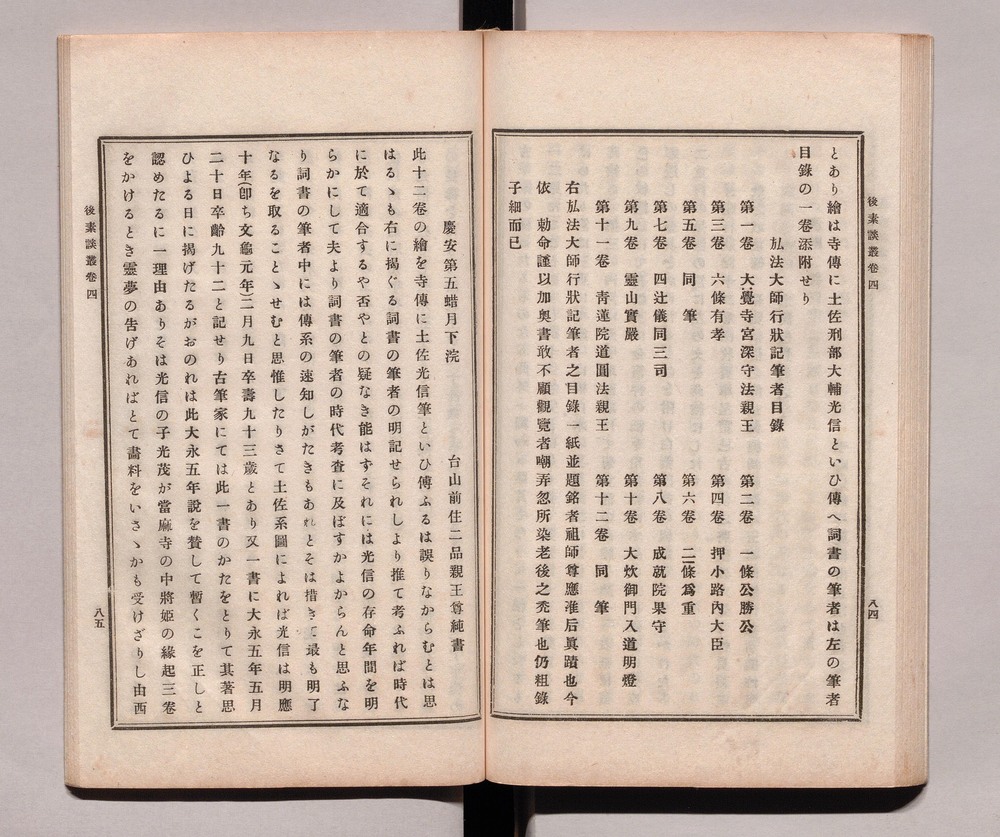 とあり繪は寺傳に土佐刑部大輔光信といひ傳へ詞書の筆者は左の筆者
目錄の一卷添附せり
弘法大師行狀記筆者目錄
第一卷 大覺寺宮深守法親王 第二卷 一條公勝公
第三卷 六條有孝 第四卷 押小路內大臣
第五卷 同 筆 第六卷 二條爲重
第七卷 四辻儀同三司 第八卷 成就院果守
第九卷 靈山實嚴 第十卷 大炊御門入道明燈
第十一卷 靑蓮院道圓法親王 第十二卷 同 筆
右弘法大師行狀記筆者之目錄一紙並題銘者祖師尊應准后眞蹟也今
依 勅命謹以加奧書敢不顧觀覽者嘲弄忽所染老後之禿筆也仍粗錄
子細而已
後素談叢卷四
八四
慶安第五蜡月下浣 台山前住二品親王尊純書
此十二卷の繪を寺傳に土佐光信筆といひ傳ふるは誤りなからむとは思
はるゝも右に揭ぐる詞書の筆者の明記せられしより推て考ふれば時代
に於て適合するや否やとの疑なき能はすそれには光信の存命年間を明
らかにして夫より詞書の筆者の時代考査に及ぼすかよからんと思ふな
り詞書の筆者中には傳系の速知しがたきもあれとそは措きて最も明了
なるを取ることゝせむと思惟したりさて土佐系圖によれば光信は明應
十年(卽ち文龜元年二月九日卒壽九十三歲とあり又一書に大永五年五月
二十日卒齡九十二と記せり古筆家にては此一書のかたをとりて其著思
ひよる日に揭げたるがおのれは此大永五年說を賛して暫くこを正しと
認めたるに一理由ありそは光信の子光茂が當麻寺の中將姬の緣起三卷
をかけるとき靈夢の吿げあればとて畵料をいさゝかも受けざりし由西
後素談叢卷四
八五